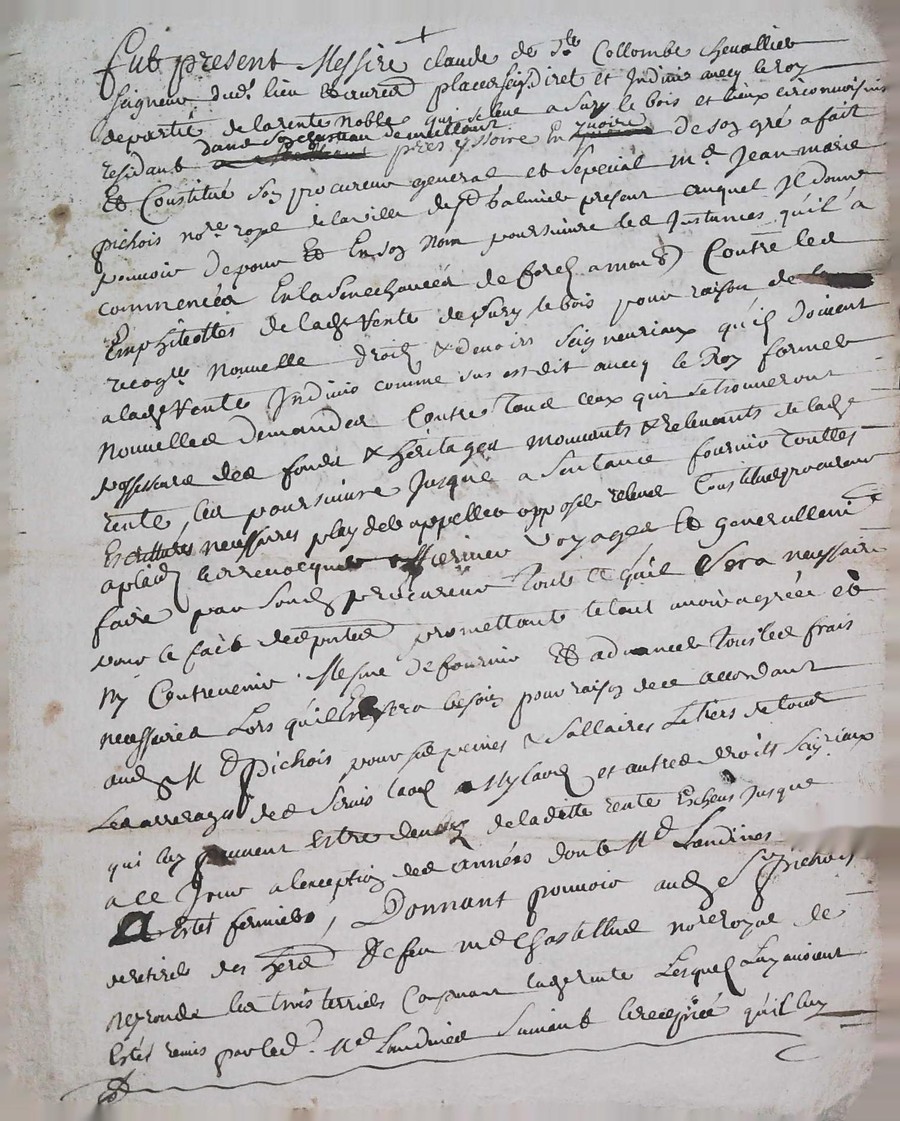 fut present Messire claude de Ste Collombe chevallier
seigneur dud. lieu et autres places seig. diret et Indivis avecq le Roy
departie de la rente Noble qui se leve a Sury le bois et lieux circonvoisins
residant dans pres yssoire En de son gré a fait
Et Constitué son procureur general et special Me Jean marie
pichois nore royal de la ville de St Galmier present auquel Il donne
pouvoir de pour Et En son Nom poursuivre les Instances qu'il a
commencées En la Senechaucée de forest a mont Contre les
Emphiteottes de lade Rente de Sury le bois pour raison de la
recogte Nouvelle droits & devoirs seigneuriaux qu'ils doivent
a lade Rente Indivis comme sus est dit avecq le Roy former
Nouvelles demandes Contre tous ceux qui se trouveront
possesseurs des fonds & heritages mouvants & relevants de lade
rente, les poursuivre Jusque a Sentance fournir touttes
Escrittures necessaires playder appeller opposer relever Constituer procureur
a plaids le revocquer affirmer voyager Et generallemt
faire par sond. procureur tout ce qu'il Sera necessaire
pour le fait promettant le tout avoir agréé et
Ny Contrevenir. Mesme de fournir Et advancer tous les frais
necessaires Lors qu'il En sera besoin pour raison de ce accordant
aud. Me Pichois pour ses peines & Sallaires Le tiers de tous
Les arrerages des Servis laods Mylaods et autres droits Seigriaux
qui luy peuvent Estre deubs de la ditte rente Escheus Jusque
a ce Jour a l'exception des années dont Me Landines
a Estés fermier, Donnant pouvoir aud. Sr Pichois
de retirer des herd. de feu me Chastellus nore royal de
les trois terriers Conçernant lade rente Lesquels Luy avoient
Estés remis par led. Me Landines Suivant le recepicé qu'il luy